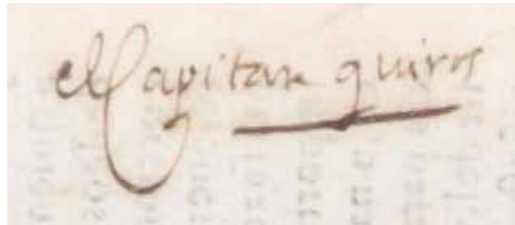 el Capitan quiros